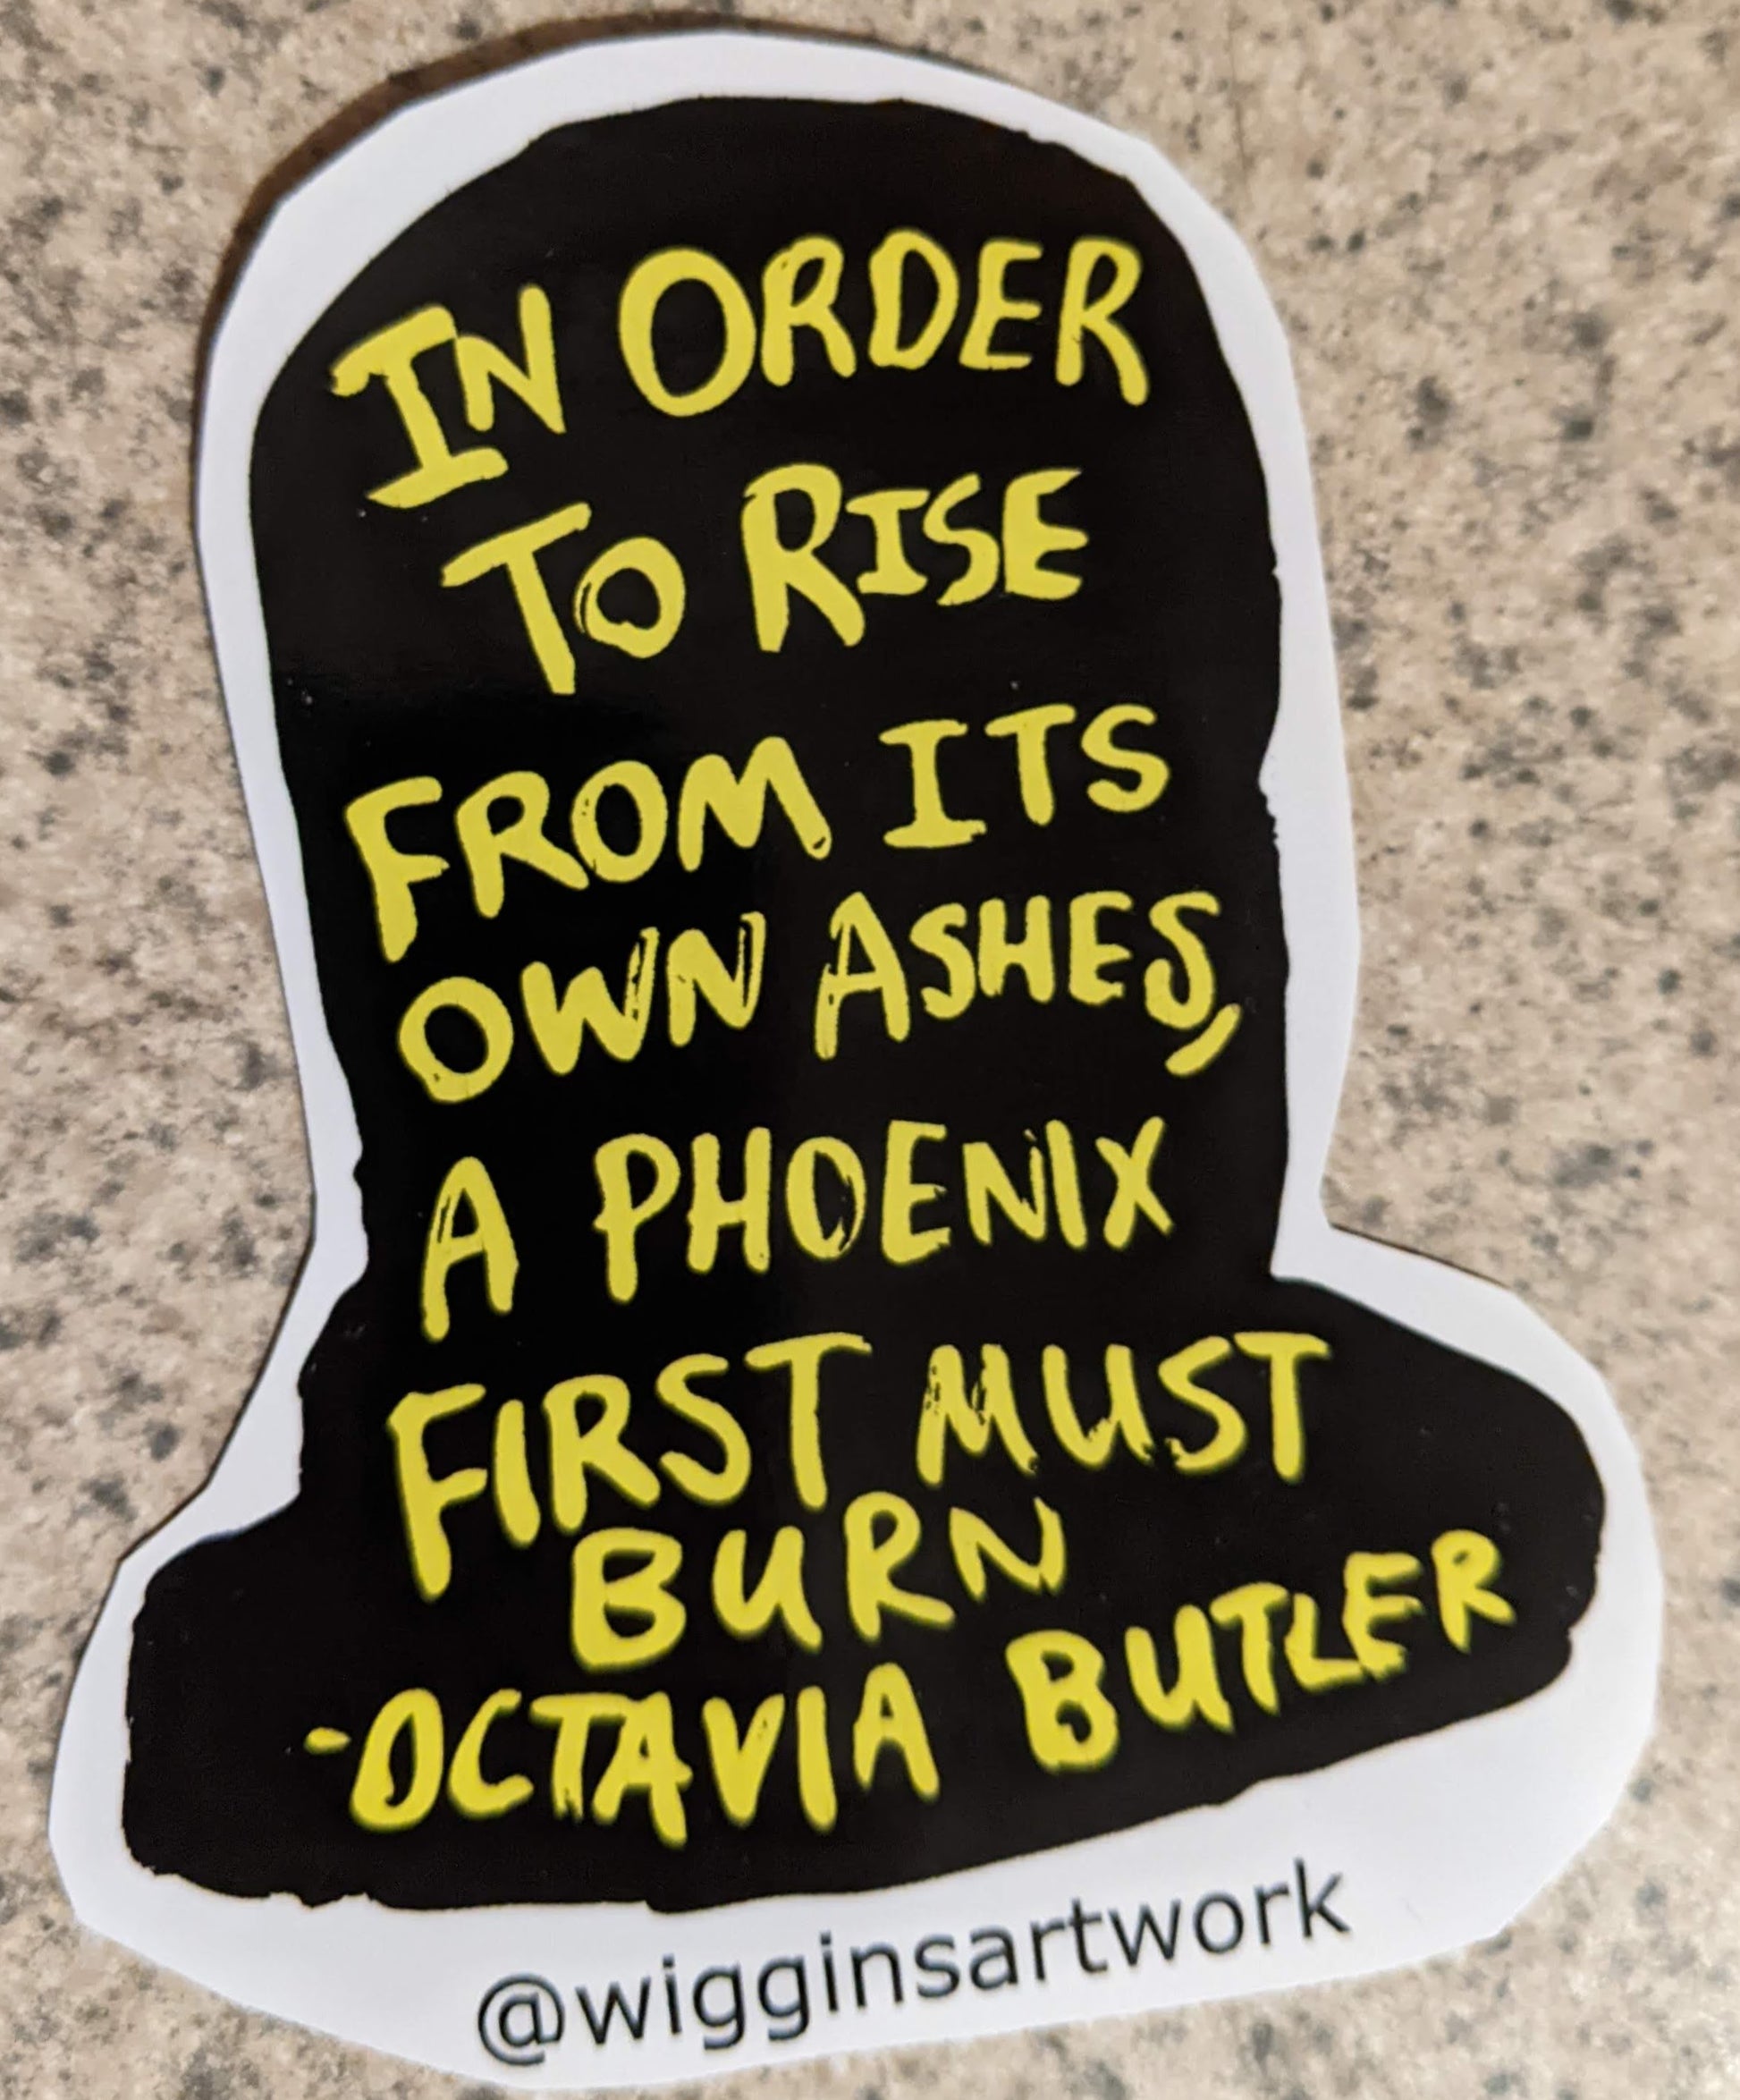 IN ORDER
TO RISE
FROM ITS
OWN ASHES,
A PHOENIX
FIRST MUST
BURN
-OCTAVIA BUTLER
@wigginsartwork